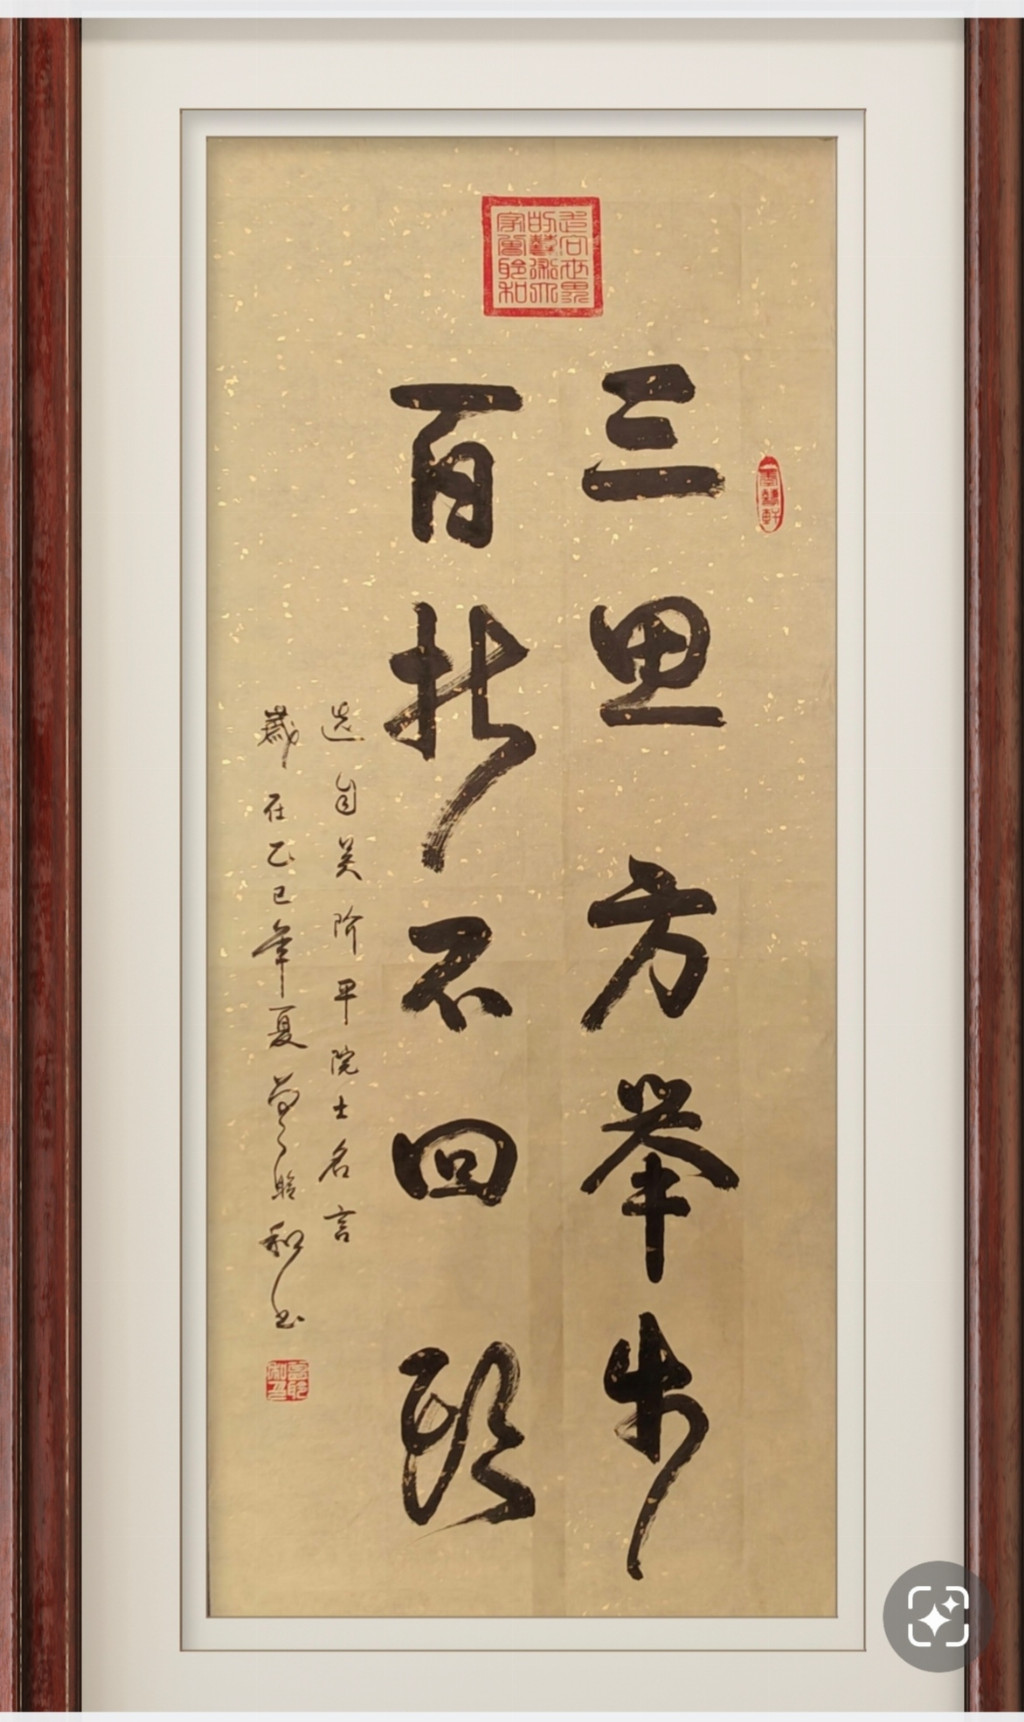 三思方举步
百折不回头
选自吴阶平院士名言
岁在乙巳年夏 曹聆和书